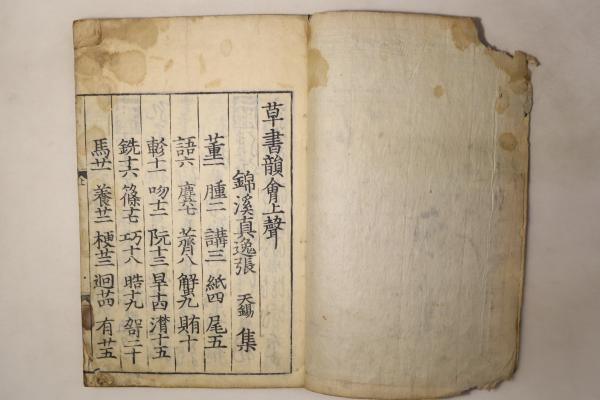 草書韻會上聲
錦溪真逸張 天錫 集
董一 腫二 講三 紙四 尾五
語六 麌七 薺八 蟹九 賄十
軫十一 吻十二 阮十三 旱十四 潸十五
銑十六 篠十七 巧十八 晧十九 哿二十
馬廿一 養廿二 梗廿三 迥廿四 有廿五